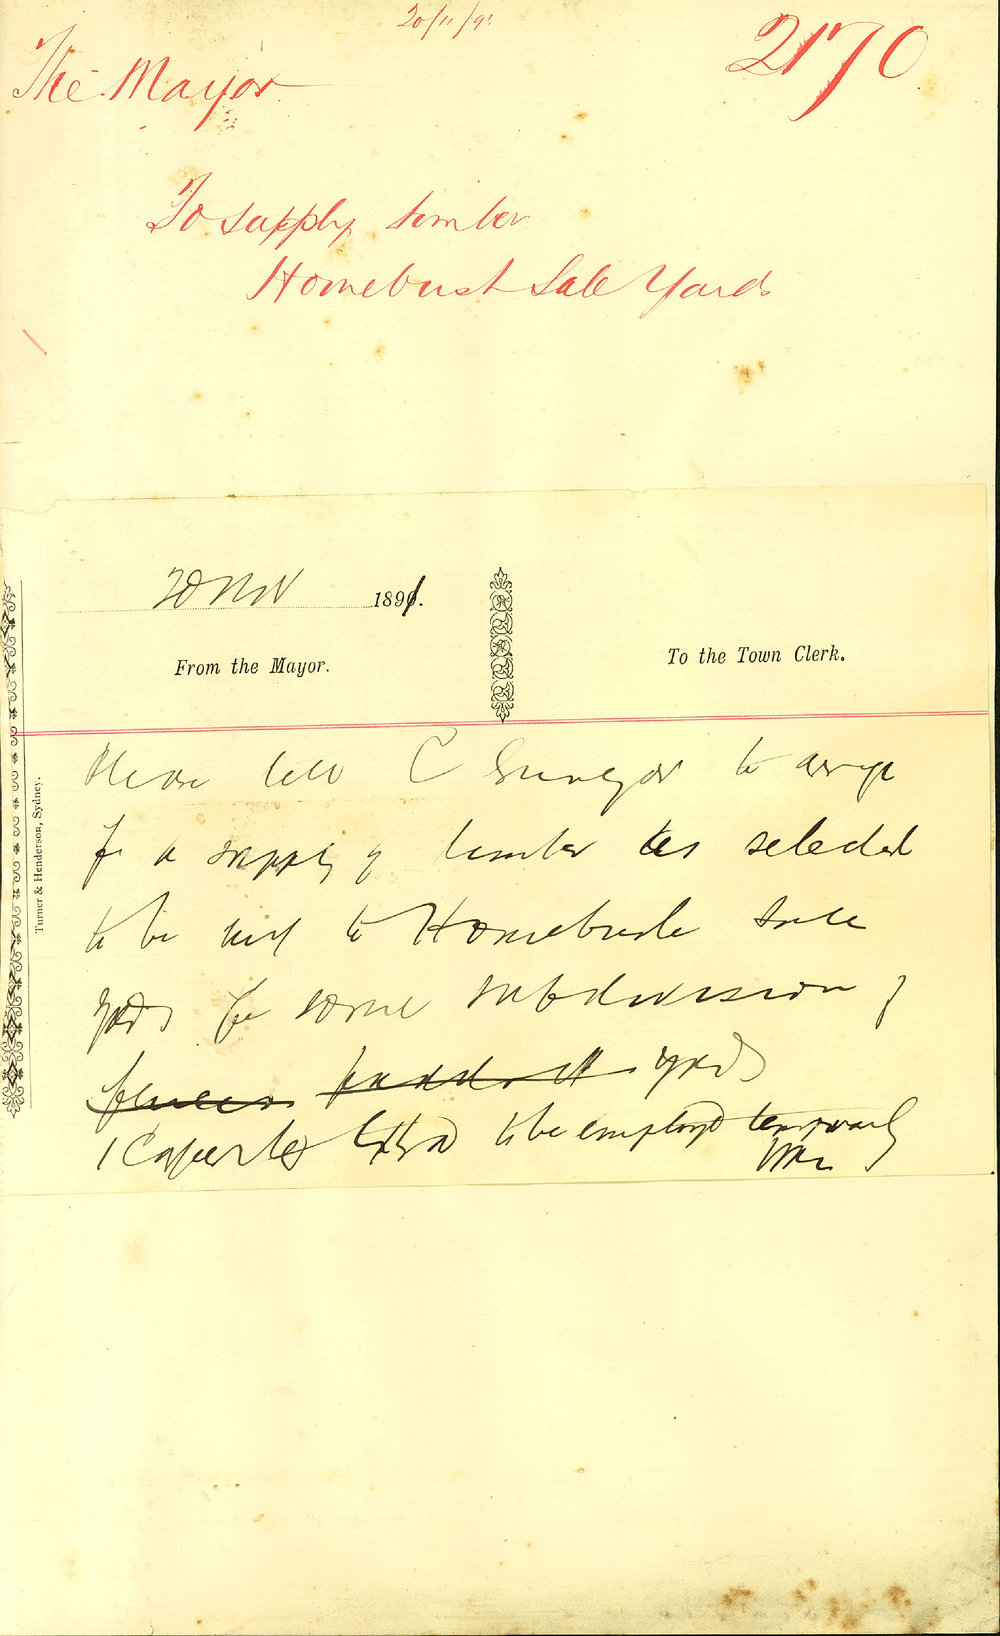 20/11/91
2170
The Mayor
To supply timber
Homebush Sale Yards
20 Nov 1891.
From the Mayor.
To the Town Clerk.
Please tell C Surveyor to arrange
for a supply of timber as selected
to be sent to Homebush Sale
yards for some subdivision of
yards
1 Carpenter to be employed temporarily
Turner & Henderson, Sydney.